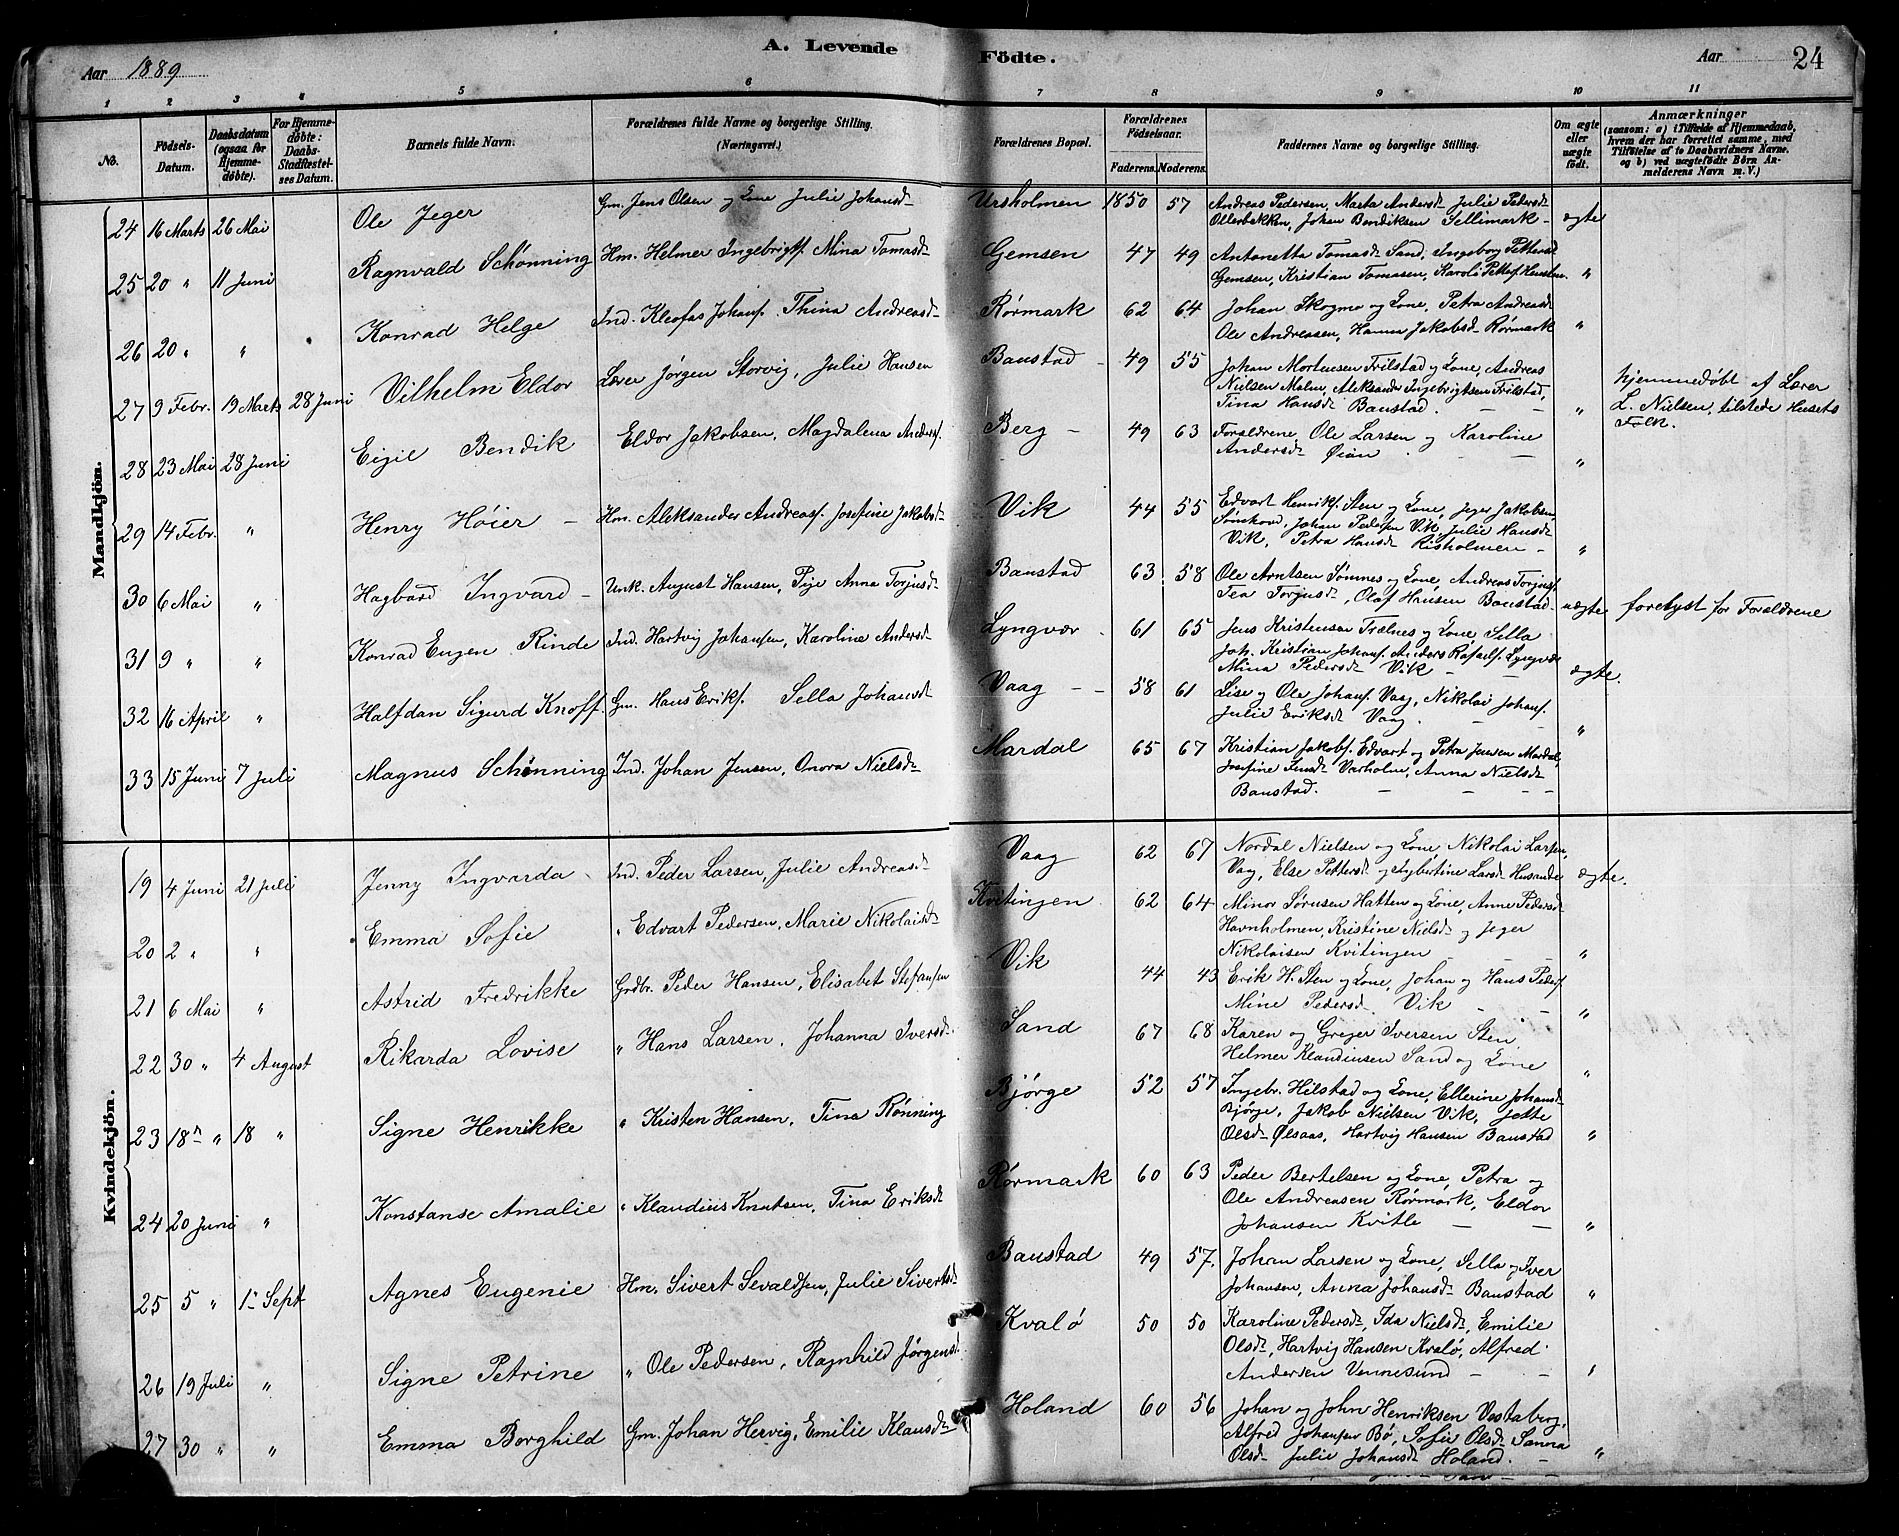 A. Levende Födte.
Aar 1889
Aar 24
1 2 3 4 5 6 7 8 9 10 11
No.
Födsels-Datum.
Daabsdatum (ogsaa for Hjemme-døbte).
For Hjemme-døbte: Daabs-Stadfæstel-ses Datum.
Barnets fulde Navn.
Forældrenes fulde Navne og borgerlige Stilling. (Næringsvei.)
Forældrenes Bopæl.
Forældrenes Födselsaar.
Faderens. Moderens.
Faddernes Navne og borgerlige Stilling.
Om ægte eller uægte födt.
Anmærkninger
(saasom: a) i Tilfælde af Hjemmedaab, hvem der har forrettet samme, med Tilføielse af to Daabsvidners Navne, og b) ved uægtefödte Börn An-melderens Navn m. V.)
Mandkjön.
24 16 Marts 26 Mai Ole Jeger Gm. Jens Olsen og Kone Julie Johansd. Ursholmen 1850 57 Andreas Pedersen, Marta Andersd. Julie Pedersd.
Ollerbakken, Johan Bendiksen Sellimark - ægte
25 20 " 11 Juni Ragnvald Schønning Hm. Helmer Ingebrigts. Mina Tomasd. Gemsen 47 49 Antonetta Tomasd. Sand, Ingeborg
Gemsen, Kristian Tomasen, Karoli "
26 20 " " Konrad Helge Ind. Kleofas Johans. Thina Andreasd. Rørmark 62 64 Johan Skogmo og Kone, Petra Andreasd.
Ole Andreasen, Hanna Jakobsd. Rørmark "
27 9 Febr. 19 Marts 28 Juni Vilhelm Eldor Lærer Jørgen Storvig, Julie Hansen Baustad - 49 55 Johan Mortensen Trilstad og Kone, Andreas
Nielsen Malm, Aleksander Ingebrigtsen Trilstad,
Tina Hansd. Baustad. - - "
hjemmedøbt af Lærer
L. Nielsen, tilstede Husets
Folk.
28 23 Mai 28 Juni Eigil Bendik Eldor Jakobsen, Magdalena Anders. Berg - 49 63 Forældrene, Ole Larsen og Karoline
Andersd. Øian "
29 14 Febr. " Henry Høier - Hm. Aleksander Andreas. Josefine Jakobsd. Vik 44 55 Edvart Henriks. Sten og Kone, Jeger Jakobsen
Johan Pedersen Vik, Julie Hansd.
Vik, Petra Hansd. Risholmen - "
30 6 Mai " Hagbard Ingvard - Unk. August Hansen, Pige Anna Torjusd. Baustad 63 58 Ole Arntsen Sømnes og Kone, Andreas Torjus.
Tea Torjusd., Olaf Hansen Baustad - uægte foretyst for Forældrene
31 9 " " Konrad Eugen Rinde Ind. Hartvig Johansen, Karoline Andersd. Lyngvær 61 65 Jens Kristensen Trælnes og Kone, Sella
Joh. Kristian Johans. Anders Rafaels. Lyngvær
Mina Pedersd. Vik - ægte.
32 16 April " Halfdan Sigurd Knoff. Gm. Hans Eriks. Sella Johansd. Vaag - - 58 61 Lise og Ole Johans. Vaag, Nikolai Johans.
Julie Eriksd. Vaag. - "
33 15 Juni 7 Juli Magnus Schønning Ind. Johan Jensen, Onora Nielsd. Mardal 65 67 Kristian Jakobs. Edvart og Petra Jensen Mardal,
Josefine Jensd. Varholm, Anna Nielsd.
Baustad. - - - -
Kvindekjön.
19 4 Juni 21 Juli Jenny Ingvarda Ind. Peder Larsen, Julie Andreasd. Vaag 62 67 Nordal Nielsen og Kone, Nikolai Larsen,
Vaag, Else Pettersd. og Sybertine Larsd. ægte.
20 2 " " Emma Sofie " Edvart Pedersen, Marie Nikolaisd. Kvitingen 62 64 Minor Sørensen Hatten og Kone, Anne Pedersd.
Havnholmen, Kristine Nielsd. og Jeger
Nikolaisen Kvitingen - - "
21 6 Mai " Astrid Fredrikke Grdbr. Peder Hansen, Elisabet Stefansen Vik 44 43 Erik H. Sten og Kone, Johan og Hans Peders.
Mine Pedersd. Vik - - "
22 30 " 4 August Rikarda Lovise " Hans Larsen, Johanna Iversd. Sand 67 68 Karen og Greger Iversen Sten
Helmer Klaudiusen Sand og Kone "
23 18 " 18 " Signe Henrikke " Kristen Hansen, Tina Rønning Bjørge 52 57 Ingebr. Hilstad og Kone, Ellerine Johansd.
Bjørge, Jakob Nielsen Vik, Jette
Olsd. Ølsaas, Hartvig Hansen Baustad "
24 20 Juni " Konstanse Amalie " Klaudius Knutsen, Tina Eriksd. Rørmark 60 63 Peder Bertelsen og Kone, Petra og
Ole Andreasen Rørmark, Eldor
Johansen Kvitle - - "
25 5 " 1 Sept Agnes Eugenie Hm. Sivert Sevaldsen, Julie Sivertsd. Baustad 49 57. Johan Larsen og Kone, Sella og Iver
Johansen, Anna Johansd. Baustad "
26 19 Juli " Signe Petrine " Ole Pedersen, Ragnhild Jørgensd. Kvalø 50 50 Karoline Pedersd., Ida Nielsd., Emilie
Olsd., Hartvig Hansen Kvalø, Alfred
Andersen Vennesund - - "
27 30 " " Emma Borghild Gm. Johan Hervig, Emilie Klausd. Holand 60 56 Johan og John Henriksen Vestaberg,
Alfred Johansen Bø, Sofie Olsd. Sanna
Olsd. Julie Johansd. Holand. - "